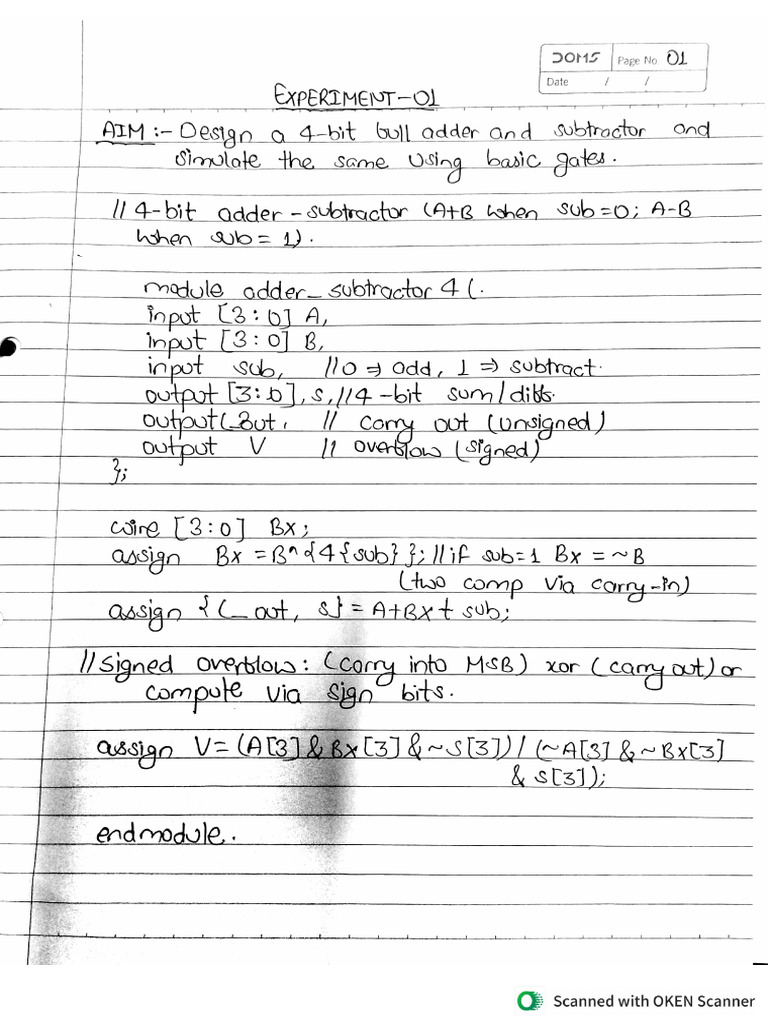 DOMS Page No. 01
Date / /
EXPERIMENT-01
AIM :- Design a 4-bit bull adder and subtractor and
simulate the same using basic gates.
// 4-bit adder-subtractor (A+B when sub=0; A-B
when sub=1).
module adder_subtractor 4 (.
input [3:0] A,
input [3:0] B,
input sub, //0 ⇒ add, 1 ⇒ subtract.
output [3:0], S, //4-bit sum/dibb.
output C_out, // carry out (unsigned)
output V // overblow (signed)
};
wire [3:0] Bx;
assign Bx = B^{4{sub}}; //if sub=1 Bx = ~B
(two comp via carry-in)
assign {C_out, S} = A+Bx+sub;
//signed overblow: (carry into MSB) xor (carry out) or
compute via sign bits.
assign V = (A[3] & Bx[3] & ~S[3]) / (~A[3] & ~Bx[3]
& S[3]);
endmodule.
Scanned with OKEN Scanner